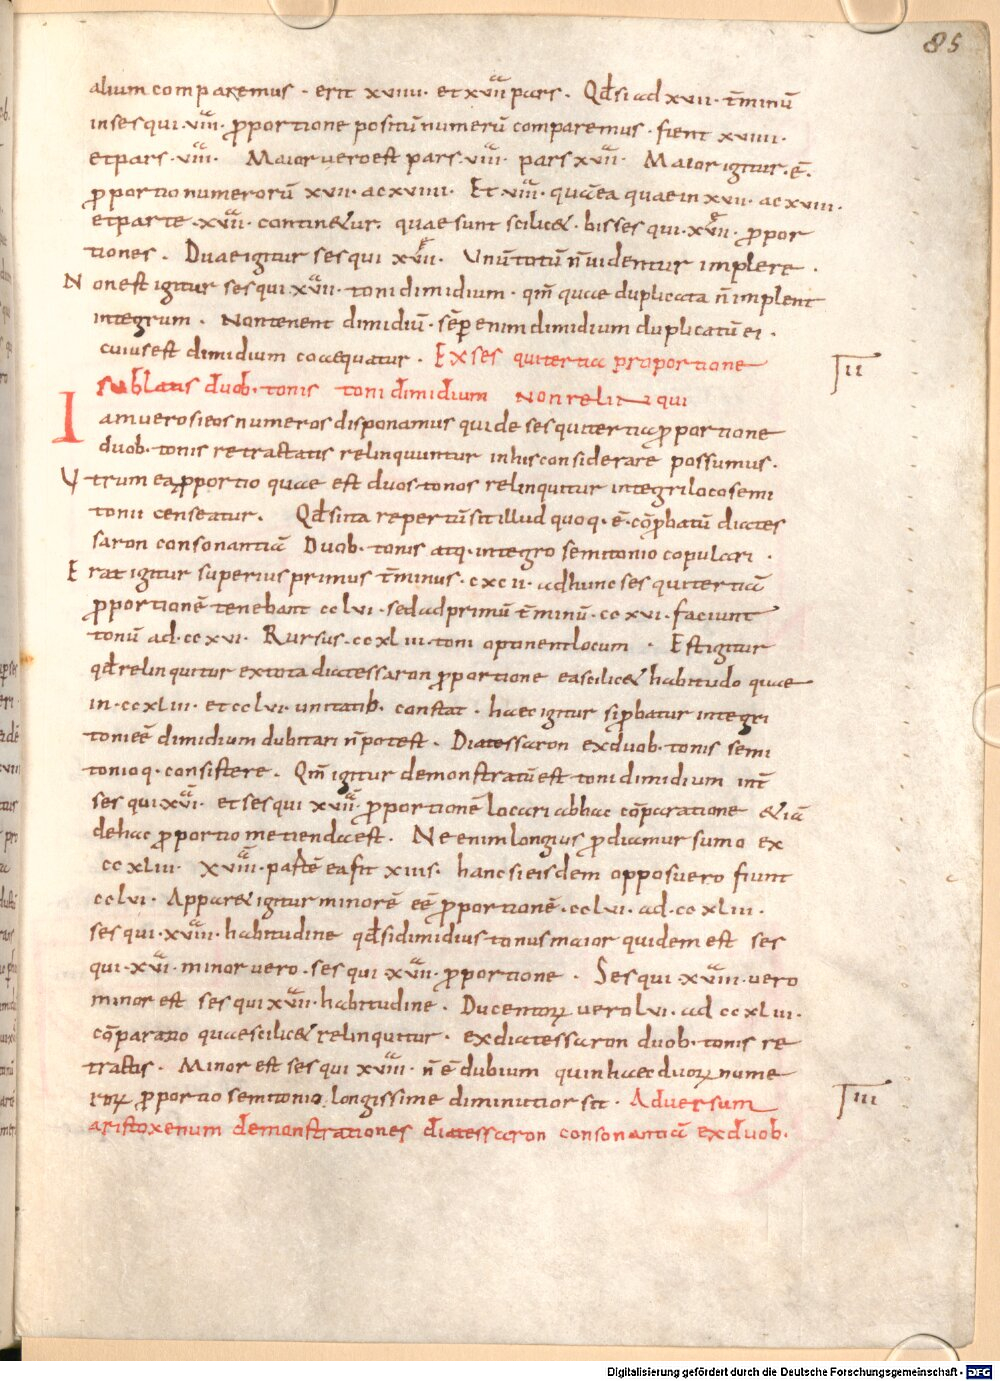 85
alium comparemus · erit xviii · et xvii^a pars · Qd̄ si ad xvii · t̄minū
in sesqui · viii^a · p̄portione positū numerū comparemus · fient xviiii ·
et pars · viii^a · Maior vero est pars · viii^a · pars xvii^a · Maior igitur · ē ·
p̄portio numerorū xvii · ac xviiii · Et viii^a · quā ea quae in xvii · ac xviii ·
et parte · xvii^a · contin&ur · quae sunt scilic& · bis sesqui · xvii^a · p̄por
tiones · Duae igitur sesqui xvii^a · Unū totū n̄ videntur implere ·
Non est igitur sesqui xvii^a · toni dimidium · qm̄ quae duplicata n̄ implent
integrum · Non tenent dimidiū · sēp enim dimidium duplicatū ei ·
cuius est dimidium coaequatur · Ex sesquitertia proportione
II
sublatis duob · tonis toni dimidium non relinqui
Iam vero si eos numeros disponamus qui de sesquitertia p̄portione
duob · tonis retractatis relinquuntur in his considerare possumus ·
Utrum ea p̄portio quae est duos tonos relinquitur integri loco semi
tonii censeatur · Qd̄ si ita repertū sit illud quoq · ē · cōprobatū diates
saron consonantiā Duob · tonis atq · integro semitonio copulari ·
Erat igitur superius primus t̄minus · cxcii · ad hunc sesquitertiā
p̄portionē tenebant cclvi · sed ad primū t̄minū · ccxvi · faciunt
tonū ad · ccxvi · Rursus · ccxliii · toni optinent locum · Est igitur
qd̄ relinquitur ex tota diatessaron p̄portione ea scilic& habitudo quae
in · ccxliii · et cclvi · unitatib · constat · haec igitur si p̄batur integri
toni eē dimidium dubitari n̄ potest · Diatessaron ex duob · tonis semi
tonioq · consistere · Qm̄ igitur demonstratū est toni dimidium int̄
sesqui xvi^a · et sesqui xvii^a p̄portionē locari ab hac cōparatione &iā
de hac p̄portio metienda est · Ne enim longius p̄diamur sumo ex
ccxliii · xviii^a · partē ea fit xiii s · hanc si eisdem opposuero fiunt
cclvi · Appar& igitur minorē eē p̄portionē · cclvi · ad · ccxliii ·
sesqui · xviii^a · habitudine qd̄ si dimidius tonus maior quidem est ses
qui · xvi^a · minor vero · sesqui xvii^a · p̄portione · Sesqui · xviii^a · vero
minor est sesqui xvii^a · habitudine · Ducentorꝝ vero lvi · ad ccxliii ·
cōparatio quae scilic& relinquitur · ex diatessaron duob · tonis re
tractis · Minor est sesqui xviii^a · n̄ ē dubium quin haec duorꝝ nume
rorꝝ p̄portio semitonio · longissime diminutior sit · Adversum
III
aristoxenum demonstrationes diatessaron consonantiā ex duob ·
Digitalisierung gefördert durch die Deutsche Forschungsgemeinschaft - DFG